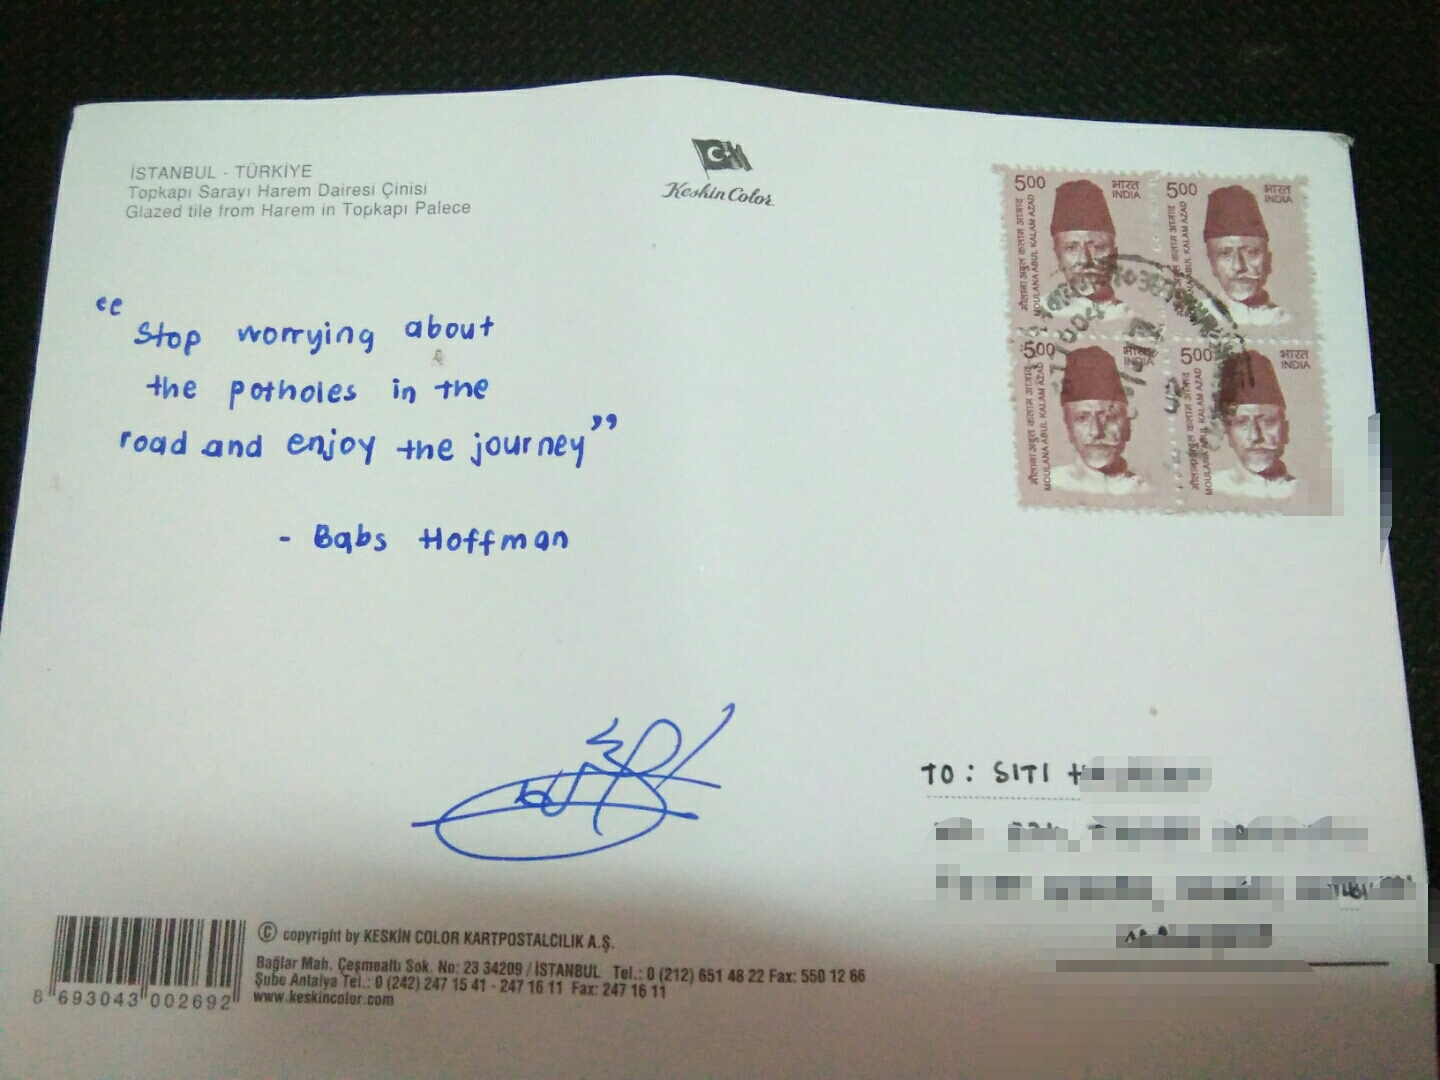 İSTANBUL - TÜRKİYE
Topkapı Sarayı Harem Dairesi Çinisi
Glazed tile from Harem in Topkapı Palece
Keskin Color
5.00 भारत INDIA
मौलाना अबुल कलाम आज़ाद
MOULANA ABUL KALAM AZAD
5.00 भारत INDIA
मौलाना अबुल कलाम आज़ाद
MOULANA ABUL KALAM AZAD
5.00 भारत INDIA
मौलाना अबुल कलाम आज़ाद
MOULANA ABUL KALAM AZAD
5.00 भारत INDIA
मौलाना अबुल कलाम आज़ाद
MOULANA ABUL KALAM AZAD
“Stop worrying about
the potholes in the
road and enjoy the journey”
- Babs Hoffman
TO: SITI
© copyright by KESKİN COLOR KARTPOSTALCILIK A.Ş.
Bağlar Mah. Çeşmealtı Sok. No: 23 34209 / İSTANBUL Tel.: 0 (212) 651 48 22 Fax: 550 12 66
Şube Antalya Tel.: 0 (242) 247 15 41 - 247 16 11 Fax: 247 16 11
www.keskincolor.com
8 693043 002692